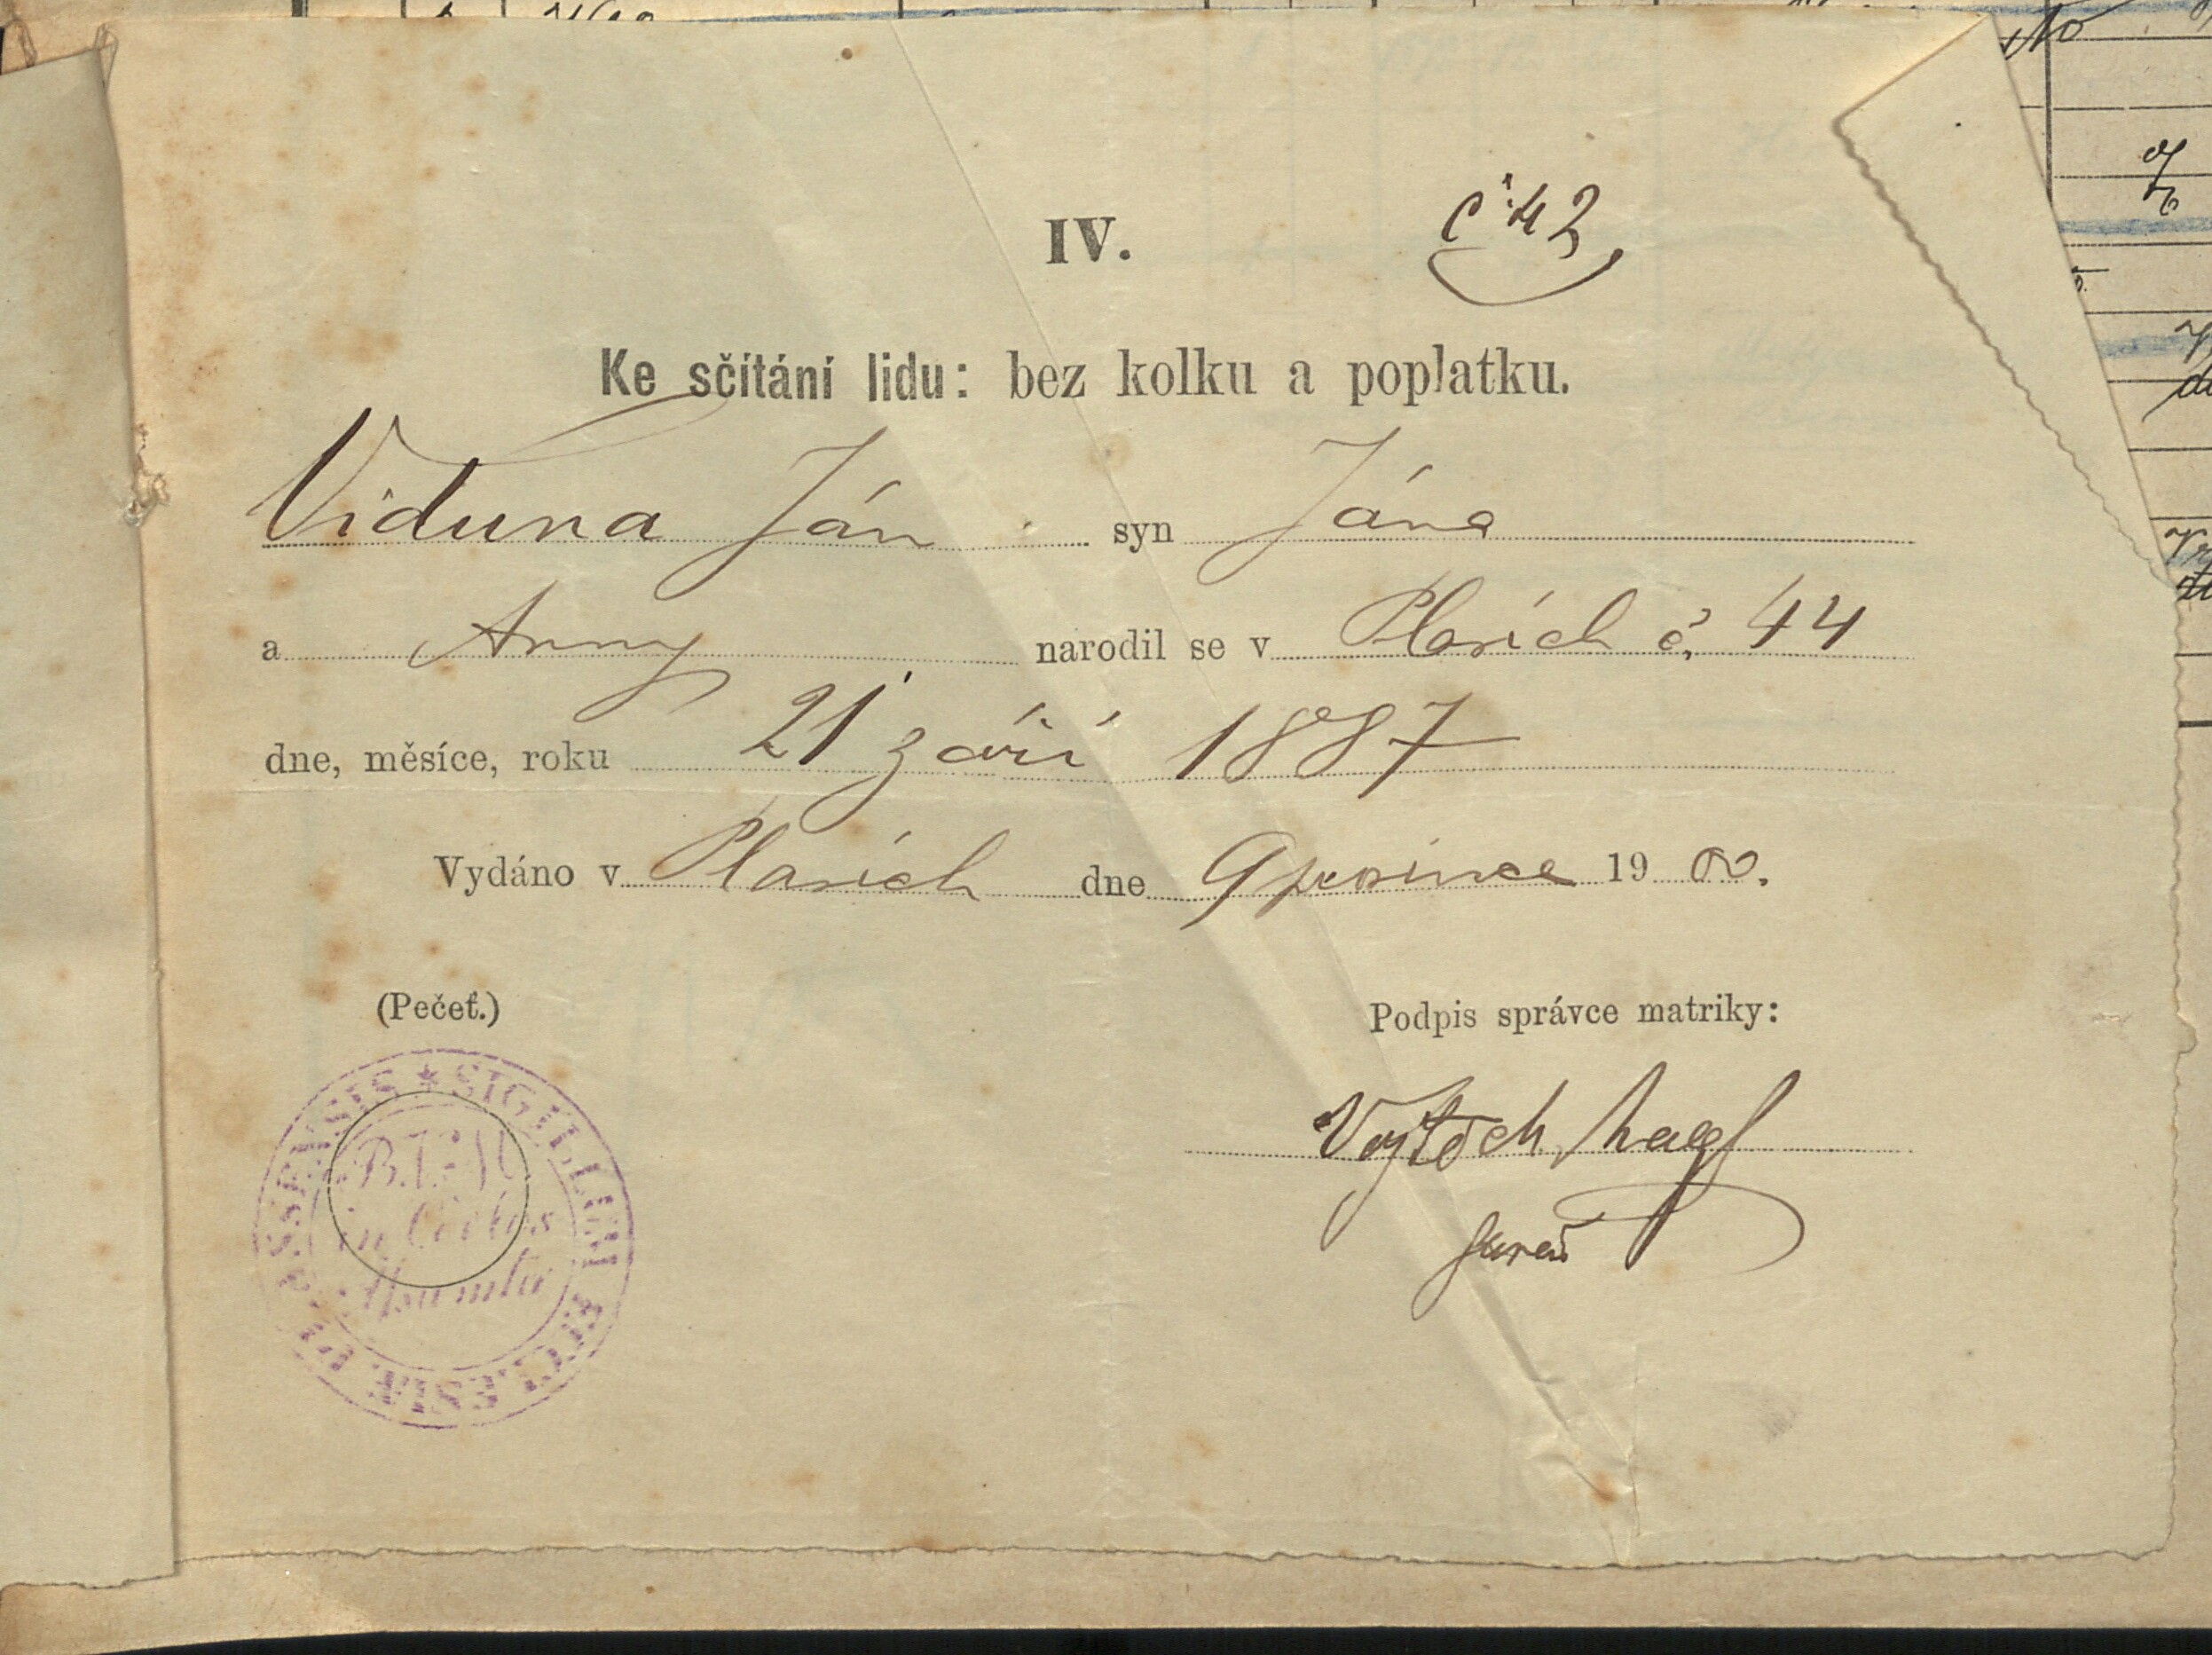 IV.
č. 42
Ke sčítání lidu: bez kolku a poplatku.
Viduna Ján syn Jána
a Anny narodil se v Plasích č. 44
dne, měsíce, roku 21 září 1887
Vydáno v Plasích dne 9 prosince 1900.
(Pečeť.)
Podpis správce matriky:
SIGILLUM ECCLESIAE PLASSENSIS *
B.V.M.
in Coelos
Assumta
Vojtěch Nagl
farář